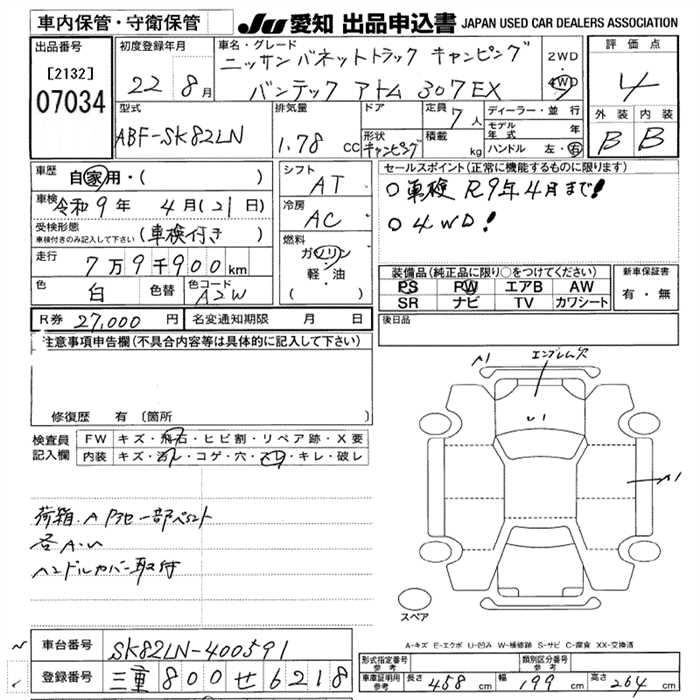 車内保管・守衛保管
JU愛知 出品申込書 JAPAN USED CAR DEALERS ASSOCIATION
出品番号
[2132]
07034
初度登録年月
22 8月
車名・グレード
ニッサン バネットトラック キャンピング
バンテック アトム 307EX
2WD
4WD
評価点
4
外装 内装
B B
型式
ABF-SK82LN
排気量
1.78 CC
ドア
形状
キャンピング
定員
7人
積載
kg
ディーラー・並行
モデル年式 年
ハンドル 左・右
車歴
自家用・( )
車検
令和9年 4月(21日)
受検形態
車検付きのみ記入して下さい
(車検付き)
走行
7万9千900km
色
白
色替
色コード
A2W
シフト
AT
冷房
AC
燃料
ガソリン
軽・油
( )
セールスポイント(正常に機能するものに限ります)
○車検 R9年4月まで!
○4WD!
装備品(純正品に限り○をつけてください)
PS PW エアB AW
SR ナビ TV カワシート
新車保証書
有・無
R券 27,000円 名変通知期限 月 日
後日品
注意事項申告欄(不具合内容等は具体的に記入して下さい)
修復歴 有 〔箇所
検査員記入欄
FW キズ・飛石・ヒビ割・リペア跡・X要
内装 キズ・汚レ・コゲ・穴・凹・キレ・破レ
荷箱.A
ハンドルカバー取付
A1
エンブレム穴
U1
A1
スペア
A-キズ E-エクボ U-凹み W-補修跡 S-サビ C-腐食 XX-交換済
車台番号 SK82LN-400591
登録番号 三重800せ6218
形式指定番号
参考
類別区分番号
参考
車庫証明用
参考
長さ 458cm 幅 199cm 高さ 264cm